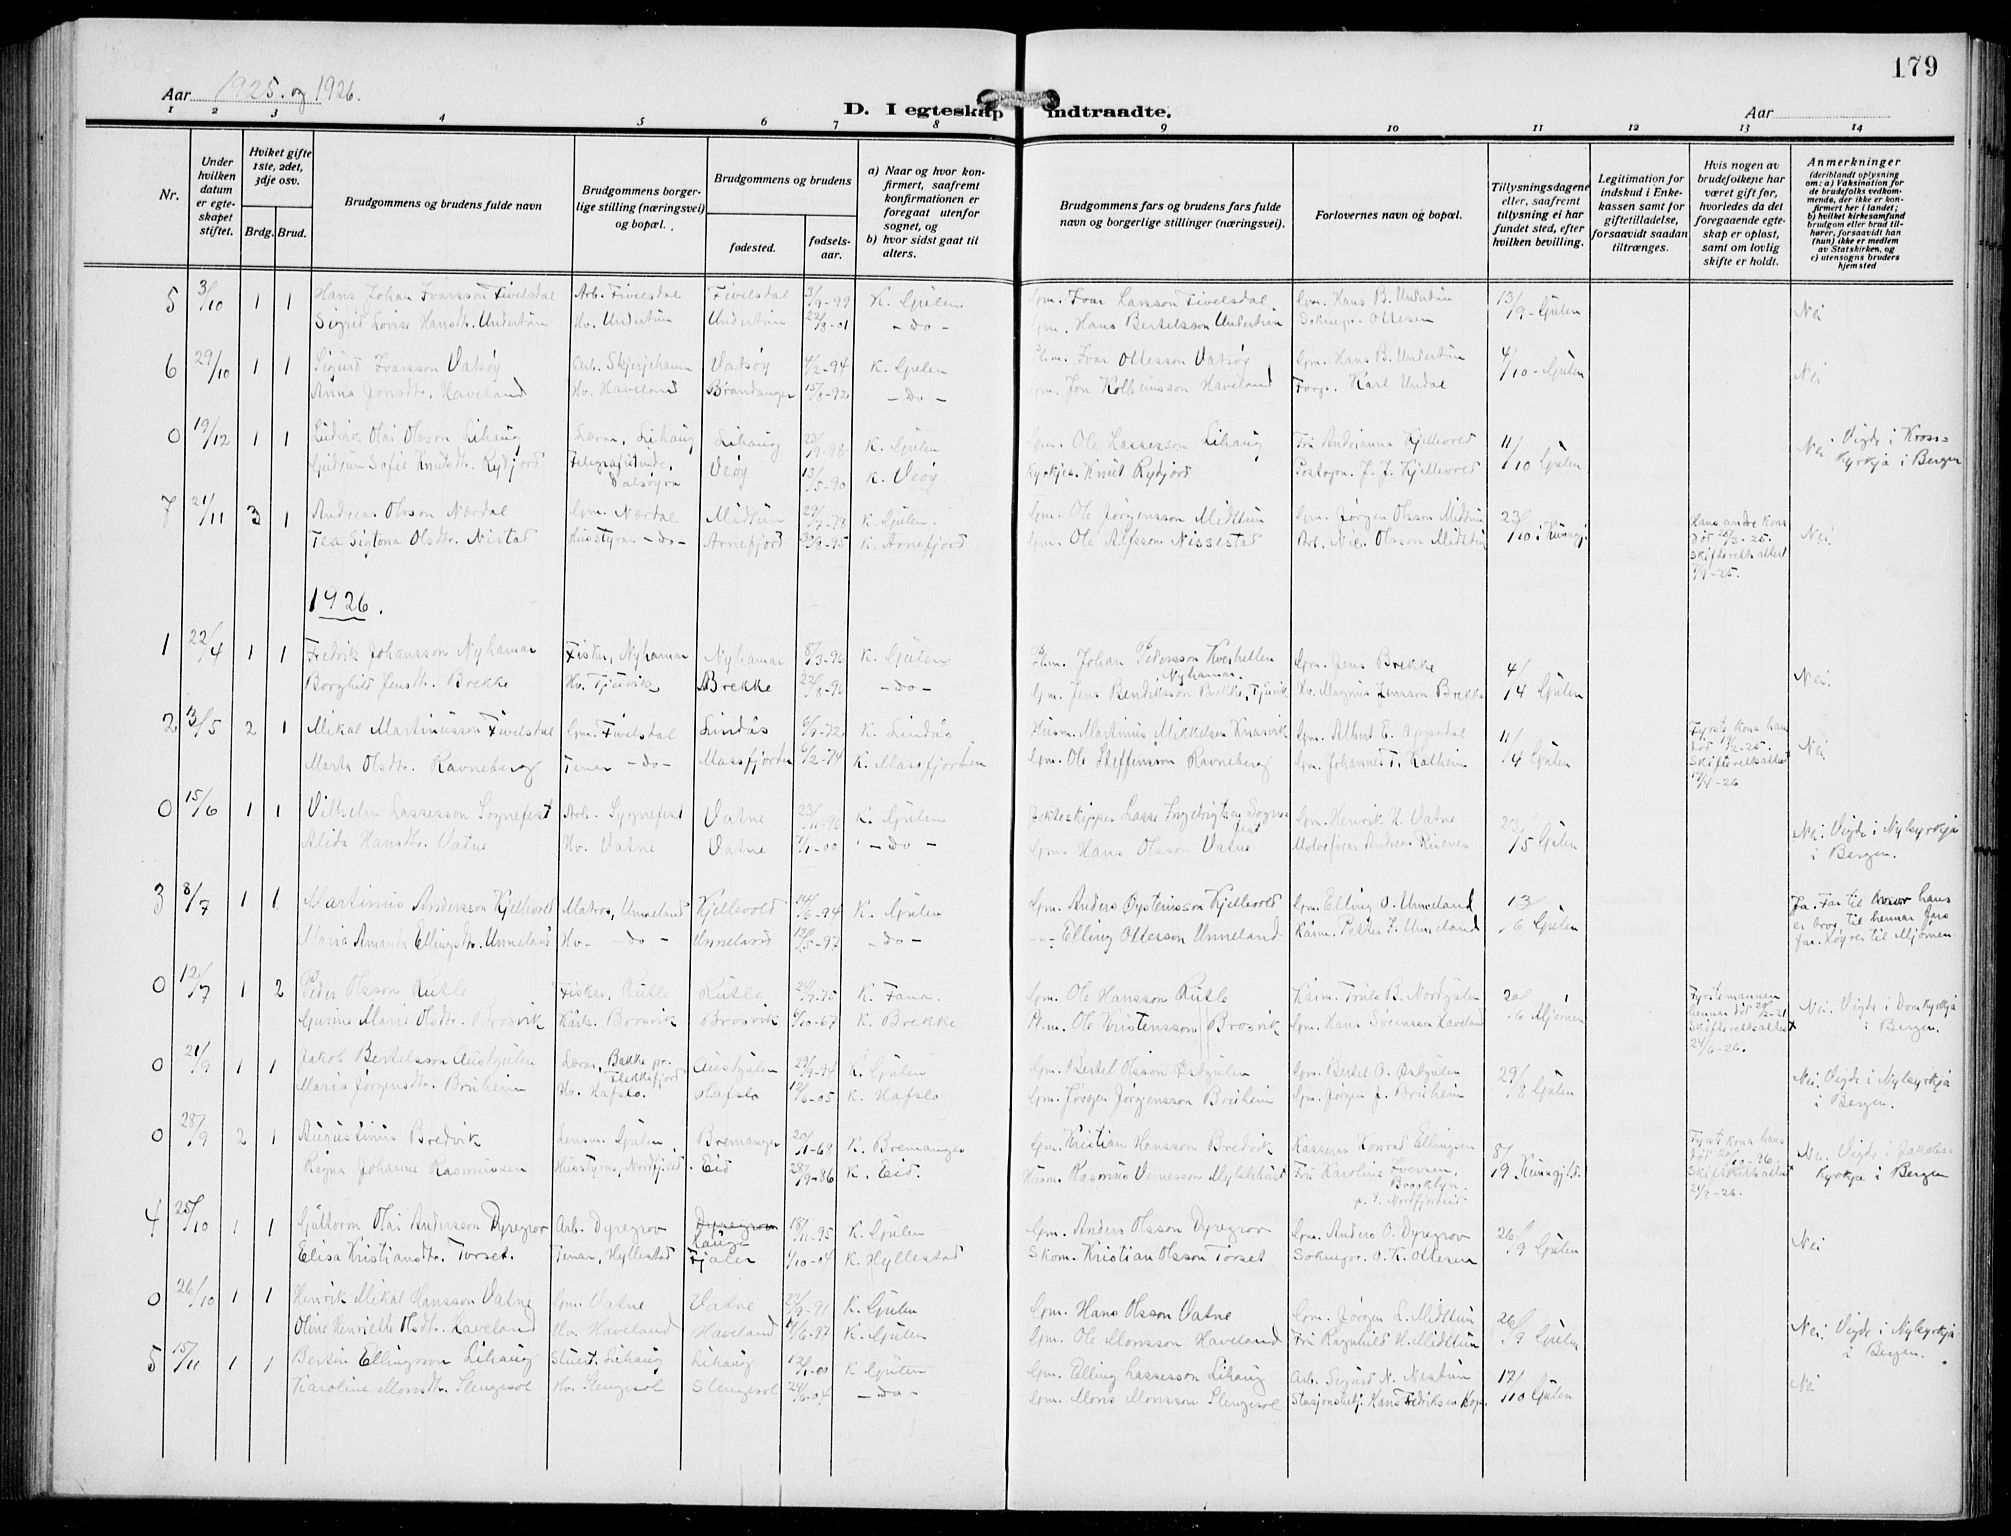 179
Aar 1925. og 1926.
D. I egteskap indtraadte.
Aar
1 2 3 4 5 6 7 8 9 10 11 12 13 14
Nr.
Under hvilken datum er egteskapet stiftet.
Hviket gifte 1ste, 2det, 3dje osv.
Brdg. Brud.
Brudgommens og brudens fulde navn
Brudgommens borgerlige stilling (næringsvei) og bopæl.
Brudgommens og brudens
fødested.
fødselsaar.
a) Naar og hvor konfirmert, saafremt konfirmationen er foregaat utenfor sognet, og
b) hvor sidst gaat til alters.
Brudgommens fars og brudens fars fulde navn og borgerlige stillinger (næringsvei).
Forlovernes navn og bopæl.
Tillysningsdagene eller, saafremt tillysning ei har fundet sted, efter hvilken bevilling.
Legitimation for indskud i Enkekassen samt for giftetilladelse, forsaavidt saadan tiltrænges.
Hvis nogen av brudefolkene har været gift før, hvorledes da det foregaaende egteskap er opløst, samt om lovlig skifte er holdt.
Anmerkninger (deriblandt oplysning om: a) Vaksination for de brudefolks vedkommende, der ikke er konfirmert her i landet; b) hvilket kirkesamfund brudgom eller brud tilhører, forsaavidt han (hun) ikke er medlem av Statskirken, og c) utensogns bruders hjemsted
5 3/10 1 1 Hans Johan Ivarsson Fivelsdal Arb. Fivelsdal Fivelsdal 3/9-99 K. Gulen Gm. Ivar Larsson Fivelsdal Gm. Hans B. Undertun 13/9 - Gulen Nei
Sigrid Lovise Hansdtr. Undertun Hv. Undertun Undertun 22/8-01 - Do - Gm. Hans Bertelsson Undertun Soknepr. Ottesen
6 29/10 1 1 Sigurd Ivarsson Vatsøy Arb. Skjerjehamn Vatsøy 4/2-94 K. Gulen Plm. Ivar Ottesson Vatsøy Gm. Hans B. Undertun 4/10 - Gulen Nei
Anna Jonsdtr. Haveland Hv. Haveland Brandanger 15/8-92 - Do - Gm. Jon Kolbeinsson Haveland Karl Undal
0 19/12 1 1 Ludvik Olai Olsson Lihaug Lærar, Lihaug Lihaug 23/9-98 K. Gulen Gm. Ole Lassesson Lihaug Fru Andrianna Kjellevold 11/10 Gulen Nei. Vigde i Krosskyrkja i Bergen
Gudrun Sofie Knutsdtr. Rydjord Telegrafistinde, Vatsøyra Veøy 13/5-90 K. Veøy Kyrkjes. Knut Rydjord Postopn. J. J. Kjellevold
7 21/11 3 1 Andreas Olsson Nærdal Gm. Nærdal Midtun K. Gulen. Gm. Ole Jørgensson Midttun Gm. Jørgen Olsson Midttun 23/10 i Kunngj. Hans andre kona død 20/3-25. Skifterettsattest 1/9-25. Nei.
Tea Sigtona Olsdtr. Nistad Husstyrar - do - Arnefjord 22/8-95 K. Arnefjord Gm. Ole Alfsson Nissestad Arb. Nic. Olsson Midttun
1926.
1 22/4 1 1 Fredrik Johansson Nyhamar Fiskar, Nyhamar Nyhamar 8/3-96 K. Gulen Plm. Johan Pedersson Kveshellen, Nyhamar. Gm. Jens Brekke 4/4 Gulen Nei.
Borghild Jensdtr. Brekke Hv. Tjuvik Brekke 22/8-96 - do - Gm. Jens Bendiksson Brekke, Tjuvik Hv. Magnus Jensson Brekke
2 3/5 2 1 Mikal Martinusson Fivelsdal Gm. Fivelsdal Lindås 6/9-72 K. Lindås Husm. Martinus Mikkelsen Gm. Albert E. Oppedal 11/4 Gulen Fyrste kona hans død 19/2-25. Skifterettsattest 17/4-26 Nei
Marta Olsdtr. Ravneberg Tenar - do - Massfjorden 6/2-74 K. Massfjorden Gm. Ole Steffensson Ravneberg Gm. Johannes T. Katheim
0 15/6 1 1 Vilhelm Lassesson Sognefest Arb. Sygnefest Vatne 23/11-96 K. Gulen Jekteskipper Lasse Ingebrigtsen Sognefest Gm. Henrik H. Vatne 23/5 Gulen Nei. Vigde i Nykyrkja i Bergen.
Alida Hansdtr. Vatne Hv. Vatne Vatne 7/1-00 - Do - Gm. Hans Olsson Vatne Motorførar Andreas Risnes
3 8/7 1 1 Martinus Andersson Kjellevold Matros, Unneland Kjellevold 14/6-94 K. Gulen Gm. Anders Øysteinsson Kjellevold Gm. Elling O. Unneland 13/6 Gulen Ja. Far til hans er bror til hennar fars far. Høyrer til Mjømen
Maria Amanda Ellingsdtr. Unneland Hv. - do - Unneland 12/5-97 - do - - " - Elling Ottesson Unneland Kårm. Petter I. Unneland
0 12/7 1 2 Peder Olsson Rutle Fiskar, Rutle Rutle 24/7-75 K. Fana. Gm. Ole Hansson Rutle Kårm. Truls B. Nordgulen 20/6 Mjømen Fyrste mannen hennar død Skifterettsattest 24/6-26. Nei. Vigde i Domkyrkja i Bergen.
Gurine Marie Olsdtr. Brosvik Kårk. Brosvik Brosvik 6/10-67 K. Brekke Plm. Ole Kristensson Brosvik Gm. Hans Sørensson Haveland
0 21/9 1 1 Jakob Bertelsson Austgulen Lærar, Bakke pr. Flekkefjord Austgulen 29/9-94 K. Gulen Gm. Bertel Olsson Østgulen Gm. Bertel O. Østgulen 29/8 Gulen Nei. Vigde i Nykyrkja i Bergen.
Maria Jørgensdtr. Bruheim Hv. Hafslo. Hafslo 12/6-05 K. Hafslo Gm. Jørgen Jørgensson Bruheim Gm. Jørgen J. Bruheim
0 28/9 2 1 Augustinus Bredvik Lensm. Gulen Bremanger 20/1-68 K. Bremanger Gm. Kristian Hansson Bredvik Kasserar Konrad Ellingsen 8/9 Kunngjord. Fyrste kona hans død Skifterettsattest 21/8-26. Nei. Vigde i Jakobskyrkja i Bergen
Ragna Johanne Rasmussen Husstyrar, Nordfjeid. Eid 28/9-86 K. Eid. Husm. Rasmus Fru Karoline Iversen, Brooklyn. p. t. Nordfjordeid
4 25/10 1 1 Guttorm Olai Andersson Dyregrov Arb. Dyregrov Dyregrov Hauge 18/11-95 K. Gulen Gm. Anders Olsson Dyregrov Gm. Anders O. Dyregrov 26/9 Gulen Nei
Elisa Kristiansdtr. Torset. Tenar, Hyllestad Fjaler 1/10-04 K. Hyllestad Skom. Kristian Olsson Torset Soknepr. O. K. Ottesen
0 26/10 1 1 Henrik Mikal Hansson Vatne Gm. Vatne Vatne 22/9-91 K. Gulen Gm. Hans Olsson Vatne Gm. Jørgen L. Midttun 26/9 Gulen Nei. Vigde i Nykyrkja i Bergen.
Oline Henriette Olsdtr. Haveland Hv. Haveland Haveland 4/6-97 K. Gulen Gm. Ole Monsson Haveland Fru Ragnhild H. Midttun
5 15/11 1 1 Bertin Ellingsson Lihaug Stuert. Lihaug Lihaug 12/1-00 K Gulen Gm. Elling Lassesson Lihaug Arb. Sigurd N. Nestun 17/10 Gulen Nei
Karoline Monsdtr. Slengesol Hv. Slengesol Slengesol 24/6-04 - do - Gm. Mons Monsson Slengesol Stasjonsbetj. Hans Fredriksen